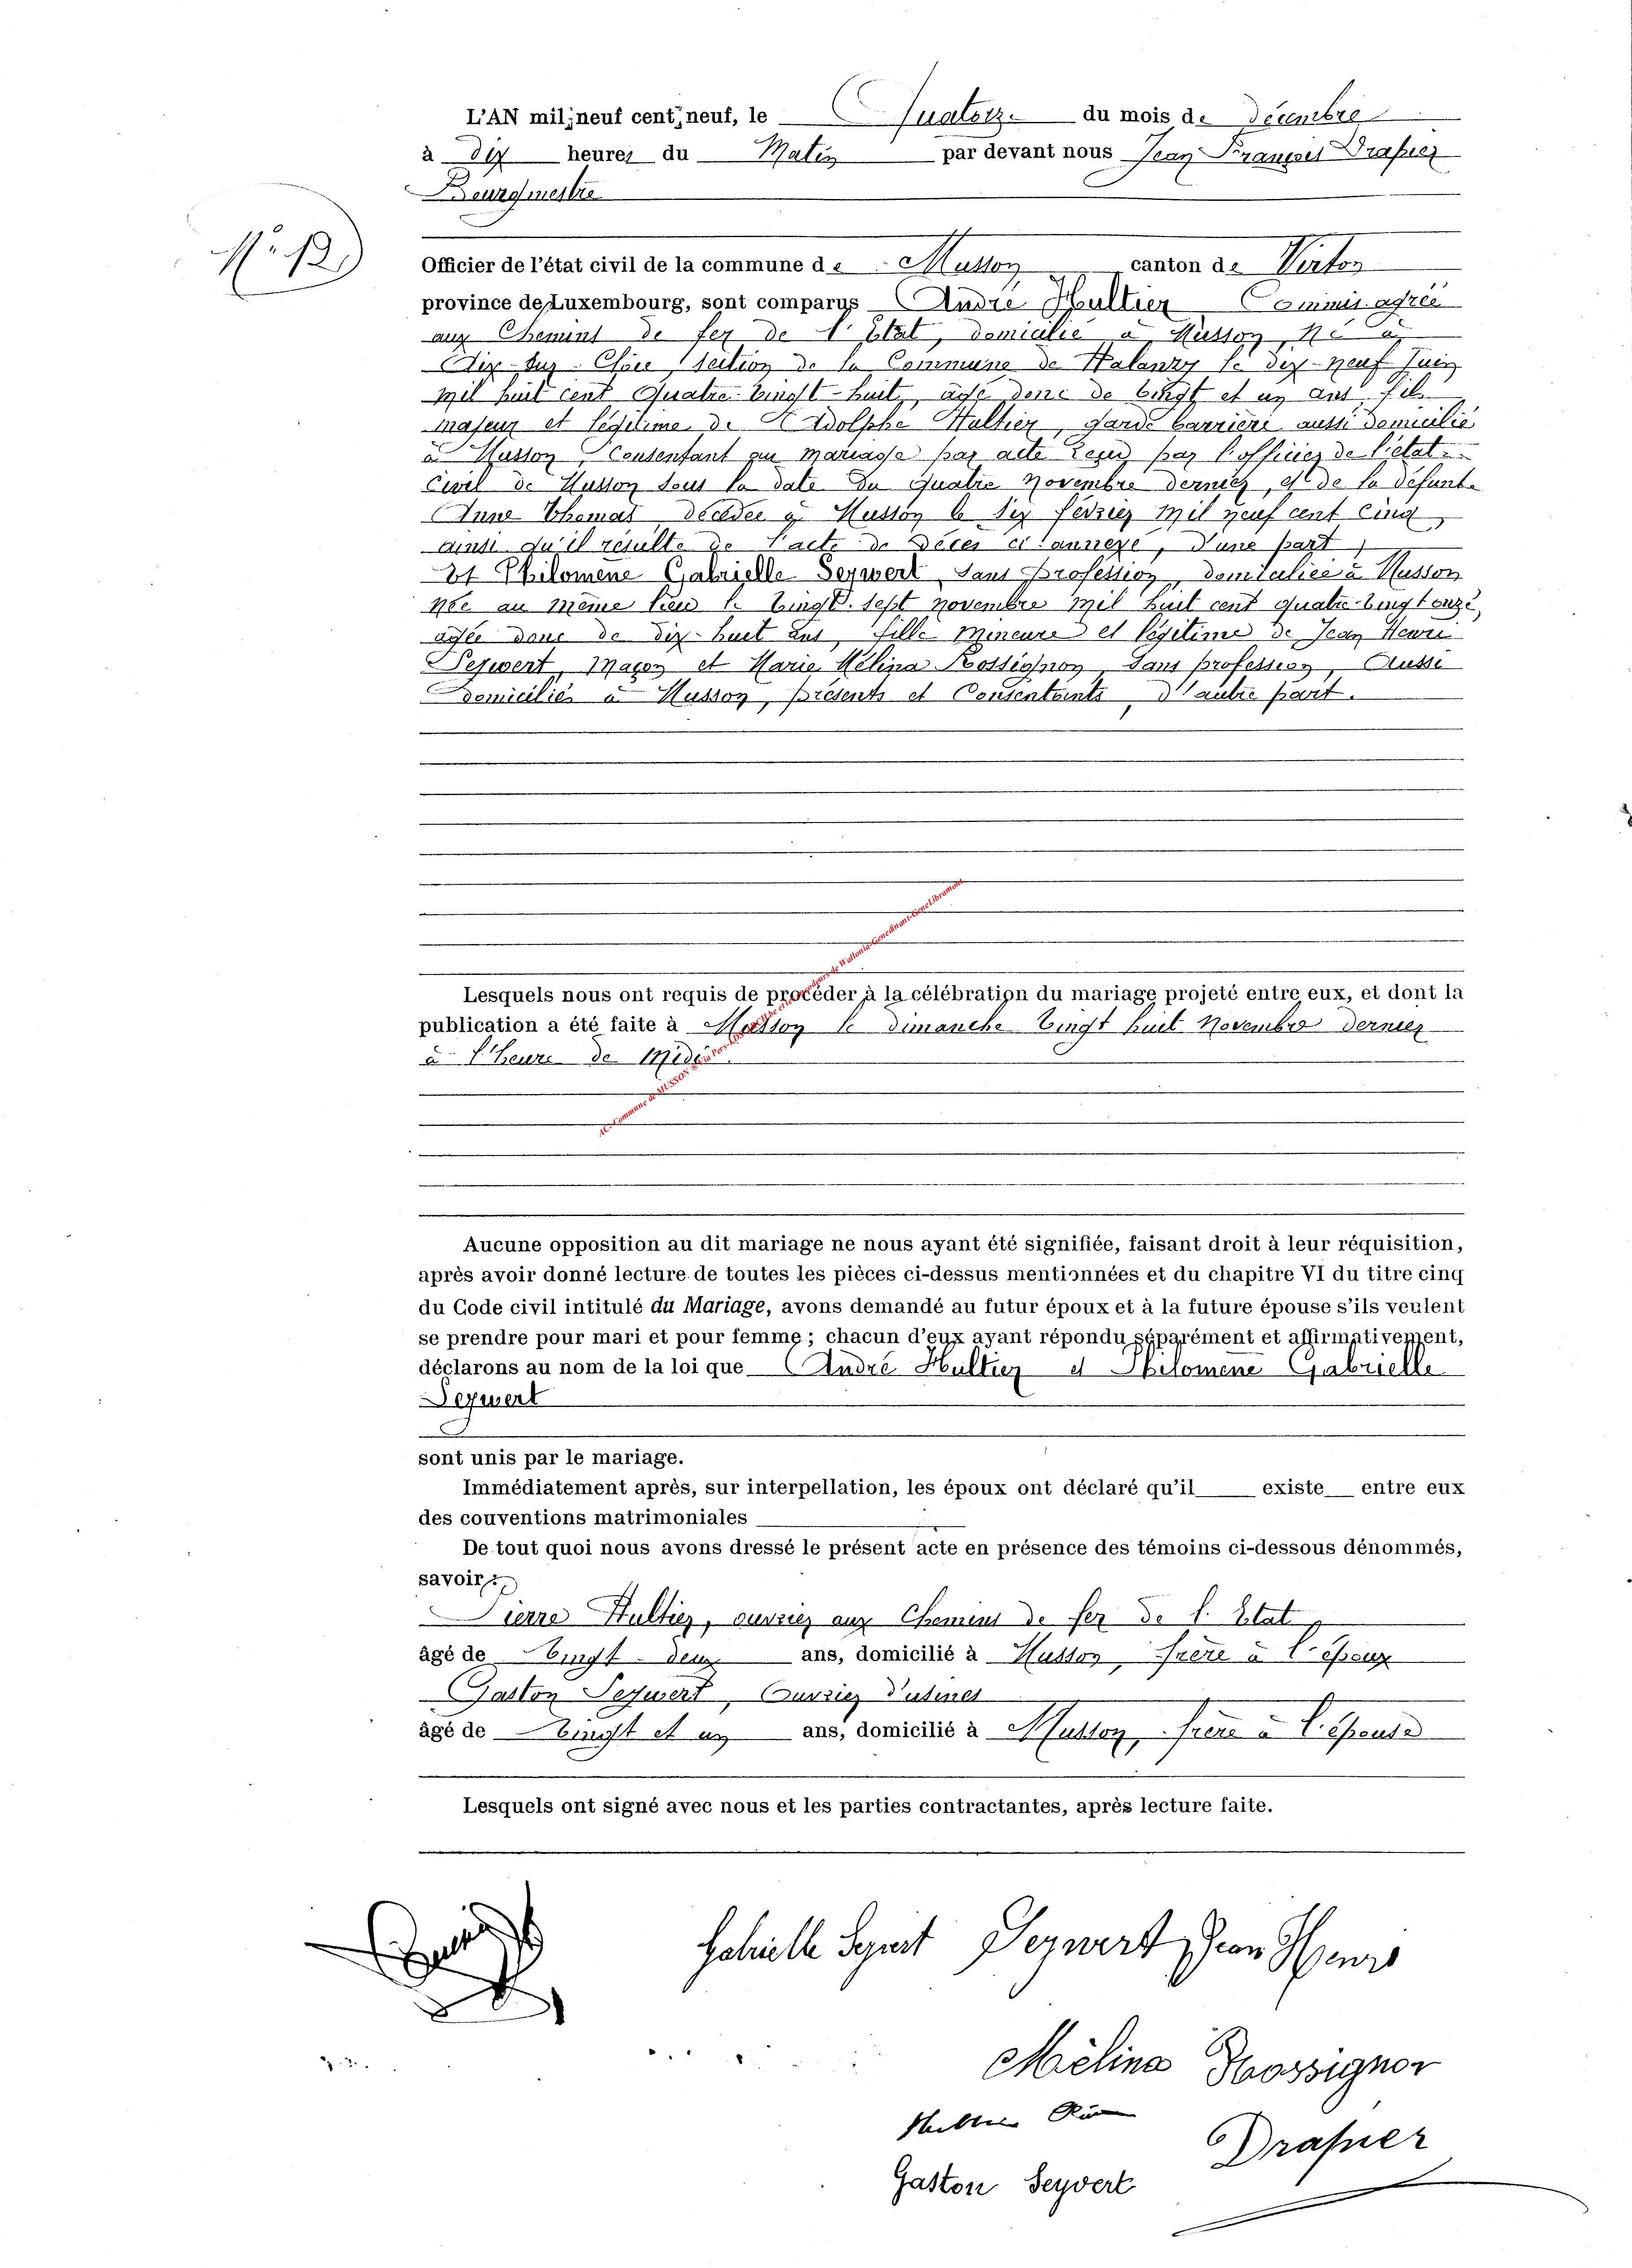 L'AN mil neuf cent neuf, le Quatorze du mois de Décembre
à dix heures du Matin par devant nous Jean François Drapier
Bourgmestre
N° 12
Officier de l'état civil de la commune de Musson canton de Virton
province de Luxembourg, sont comparus André Hultier Commis agréé
aux Chemins de fer de l'Etat, domicilié à Musson, né à
Aix-sur-Cloie (section de la Commune de Halanzy le dix-neuf Juin
mil huit cent quatre-vingt-huit, âgé donc de vingt et un ans, fils
majeur et légitime de Adolphe Hultier, garde barrière aussi domicilié
à Musson, Consentant au mariage par acte reçu par l'officier de l'état
Civil de Musson sous la date du quatre Novembre dernier, et de la défunte
Anne Thomas décédée à Musson le six février mil neuf cent cinq,
ainsi qu'il résulte de l'acte de décès ci annexé, d'une part,
Et Philomène Gabrielle Seywert, sans profession, domiciliée à Musson
née au même lieu le vingt-sept novembre mil huit cent quatre-vingt onze,
âgée donc de dix-huit ans, fille mineure et légitime de Jean Henri
Seywert, Maçon et Marie Mélina Rossignon, sans profession, Aussi
domiciliés à Musson, présents et Consentants, d'autre part.
Lesquels nous ont requis de procéder à la célébration du mariage projeté entre eux, et dont la
publication a été faite à Musson le dimanche vingt huit Novembre dernier
à l'heure de Midi.
Aucune opposition au dit mariage ne nous ayant été signifiée, faisant droit à leur réquisition,
après avoir donné lecture de toutes les pièces ci-dessus mentionnées et du chapitre VI du titre cinq
du Code civil intitulé du Mariage, avons demandé au futur époux et à la future épouse s'ils veulent
se prendre pour mari et pour femme ; chacun d'eux ayant répondu séparément et affirmativement,
déclarons au nom de la loi que André Hultier et Philomène Gabrielle
Seywert
sont unis par le mariage.
Immédiatement après, sur interpellation, les époux ont déclaré qu'il existe entre eux
des couventions matrimoniales
De tout quoi nous avons dressé le présent acte en présence des témoins ci-dessous dénommés,
savoir :
Pierre Hultier, ouvrier aux Chemins de fer de l'Etat
âgé de vingt-deux ans, domicilié à Musson, frère à l'époux
Gaston Seywert, Ouvrier d'usines
âgé de vingt et un ans, domicilié à Musson, frère à l'épouse
Lesquels ont signé avec nous et les parties contractantes, après lecture faite.
Gabrielle Seywert Seywert Jean Henri
Mélina Rossignon
Hultier
Drapier
Gaston Seyvert